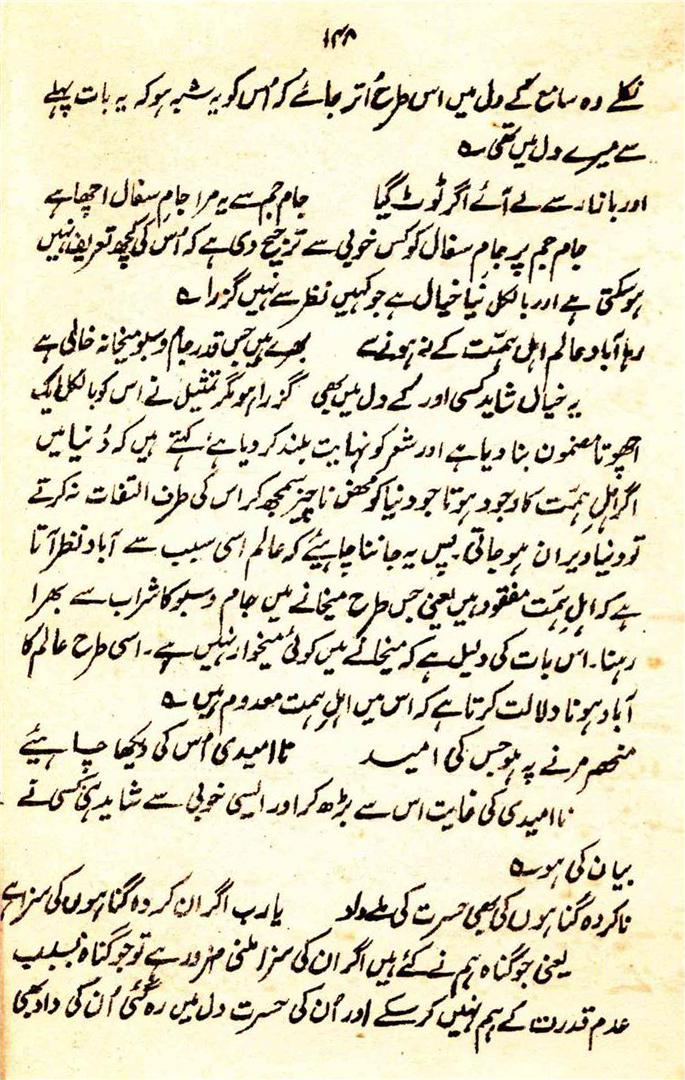 ۱۴۸
نکلے وہ سامع کے دل میں اس طرح اُتر جائے کہ اُس کو یہ شبہ ہو کہ یہ بات پہلے
سے میرے دل میں تھی ؎
اور بازار سے لے آئے اگر ٹوٹ گیا جام جم سے یہ مرا جامِ سفال اچھا ہے
جام جم پر جامِ سفال کو کس خوبی سے ترجیح دی ہے کہ اُس کی کچھ تعریف نہیں
ہو سکتی ہے اور بالکل نیا خیال ہے جو کہیں نظر سے نہیں گزرا ؎
رہا آباد عالم اہل ہمّت کے نہ ہونے سے بھرے ہیں جس قدر جام و سبو میخانہ خالی ہے
یہ خیال شاید کسی اور کے دل میں بھی گزرا ہو مگر تمثیل نے اس کو بالکل ایک
اچھوتا مضمون بنا دیا ہے اور شعر کو نہایت بلند کر دیا ہے۔ کہتے ہیں کہ دُنیا میں
اگر اہلِ ہمّت کا وجود ہوتا جو دنیا کو محض ناچیز سمجھ کر اس کی طرف التفات نہ کرتے
تو دنیا ویران ہو جاتی۔ پس یہ جاننا چاہئیے کہ عالم اسی سبب سے آباد نظر آتا
ہے کہ اہلِ ہمّت مفقود ہیں یعنی جس طرح میخانے میں جام و سبو کا شراب سے بھرا
رہنا۔ اس بات کی دلیل ہے کہ میخانے میں کوئی میخوار نہیں ہے۔ اسی طرح عالم کا
آباد ہونا دلالت کرتا ہے کہ اس میں اہلِ ہمت معدوم ہیں ؎
منحصر مرنے پہ ہو جس کی امید نا امیدی اُس کی دیکھا چاہئیے
نا امیدی کی غایت اس سے بڑھ کر اور ایسی خوبی سے شاید ہی کسی نے
بیان کی ہو ؎
ناکردہ گناہوں کی بھی حسرت کی ملے داد یارب اگر ان کردہ گناہوں کی سزا ہے
یعنی جو گناہ ہم نے کئے ہیں اگر ان کی سزا ملنی ضرور ہے تو جو گناہ بسبب
عدم قدرت کے ہم نہیں کر سکے اور اُن کی حسرت دل میں رہ گئی اُن کی داد بھی